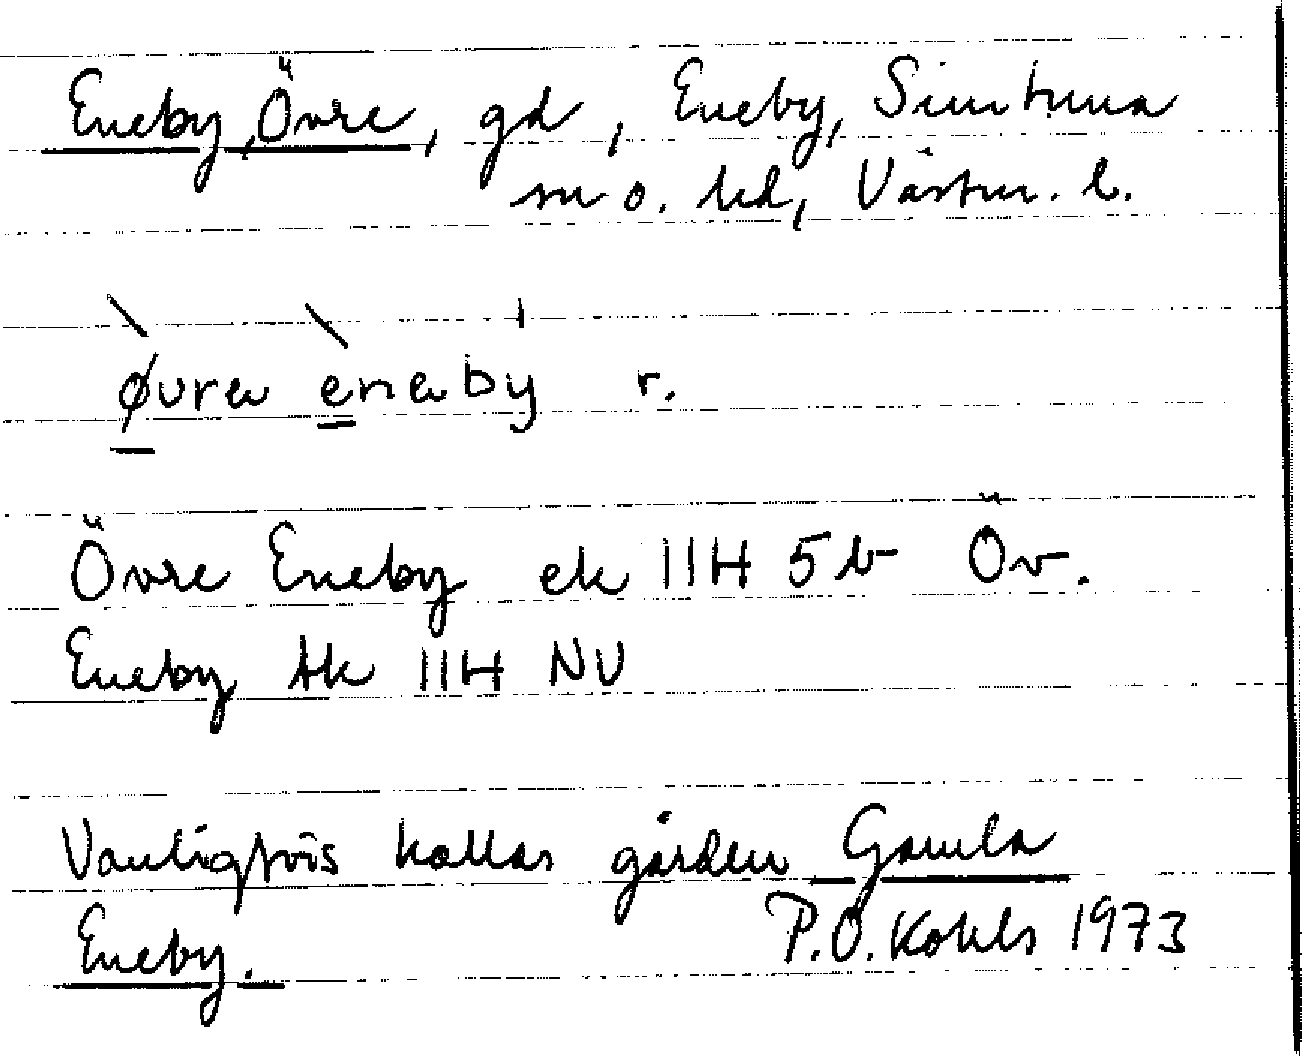 Eneby, Övre, gd, Eneby, Simtuna
sn o. hd, Västm. l.
øvrə enəby r.
Övre Eneby ek 11H 5b Öv.
Eneby tk 11H NV
Vanligtvis kallas gården Gamla
Eneby. P.O. Kohls 1973